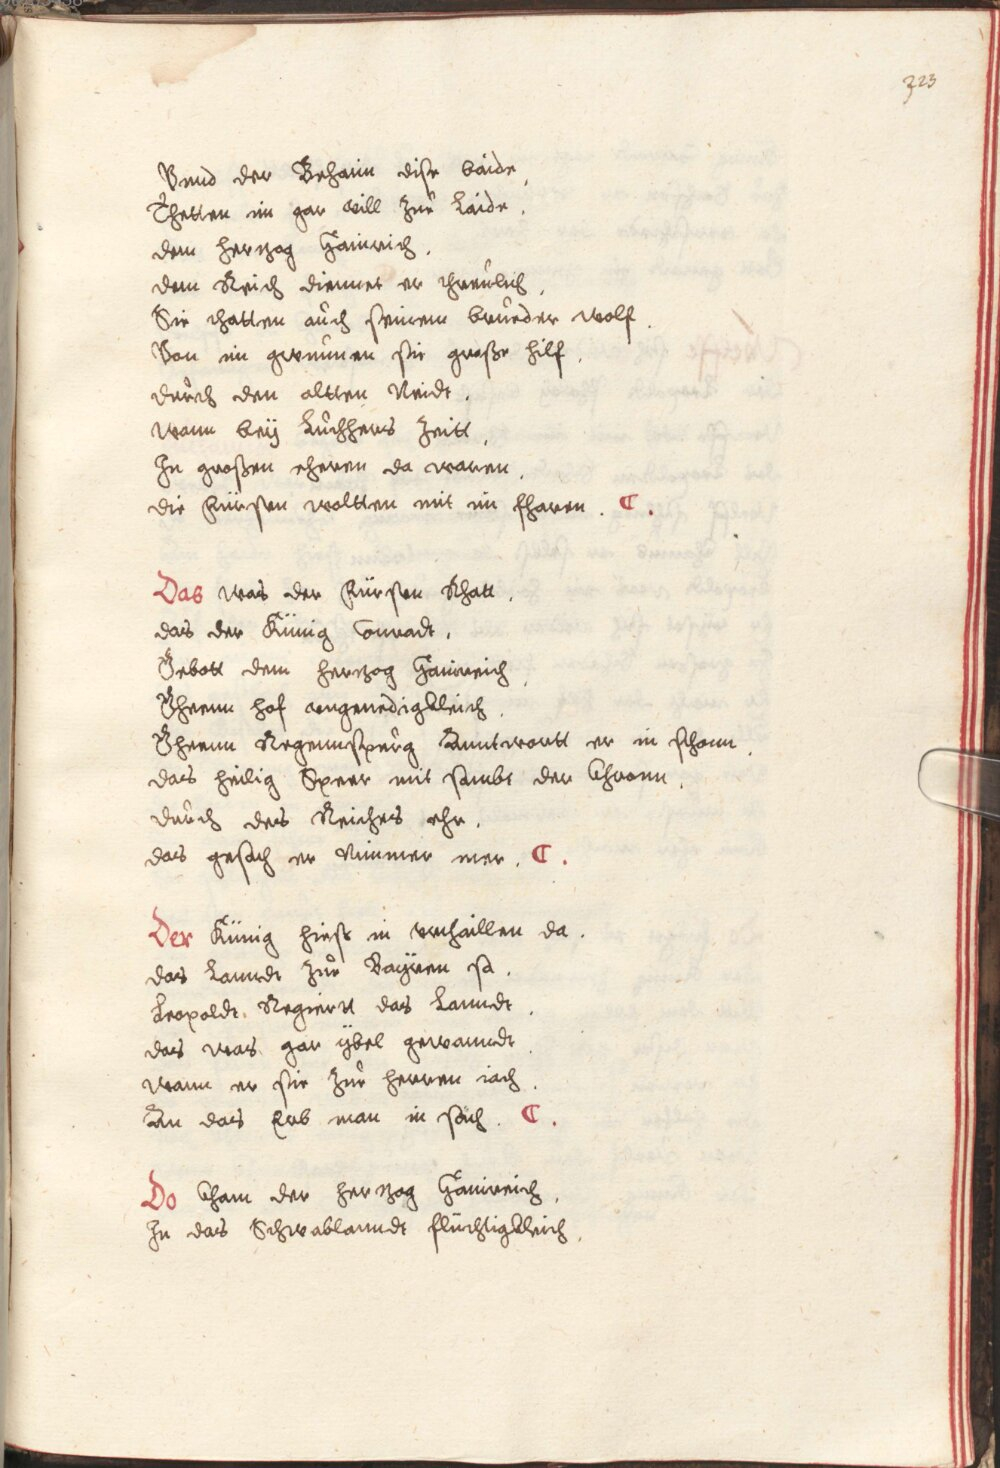 323
Vnnd der Behaim dise baide,
Thetten im gar vill zue Laide.
dem hertzog Hainrich.
dem Reich diennet er threulich,
Sie thatten auch seinem brueder wolf.
Von im gewunnen sie große hilf.
durch den altten Neidt.
wann bey Luthhers Zeitt,
In großen eheren da waren,
die Fürsten woltten mit im fharen. C.
Das was der Fürsten Rhatt.
das der Künig Conradt.
Gebott dem hertzog Hainreich,
Gheenn hof ongenedigkleich.
Gheenn Regennspurg Anntwortt er in schonn,
das heilig Speer mit sambt der Chronn.
durch des Reiches ehr.
das geschach er Nimmer mer. C.
Der Künig hiess in vrthaillen da.
das Lanndt zue Bayren sa.
Leopoldt Regiert das Lanndt.
das was gar ybel gewanndt,
wann er sie zue herren iach.
An das Erb man in sach. C.
Do Cham der hertzog Hainreich,
In das Schwablanndt flüchtigkleich,